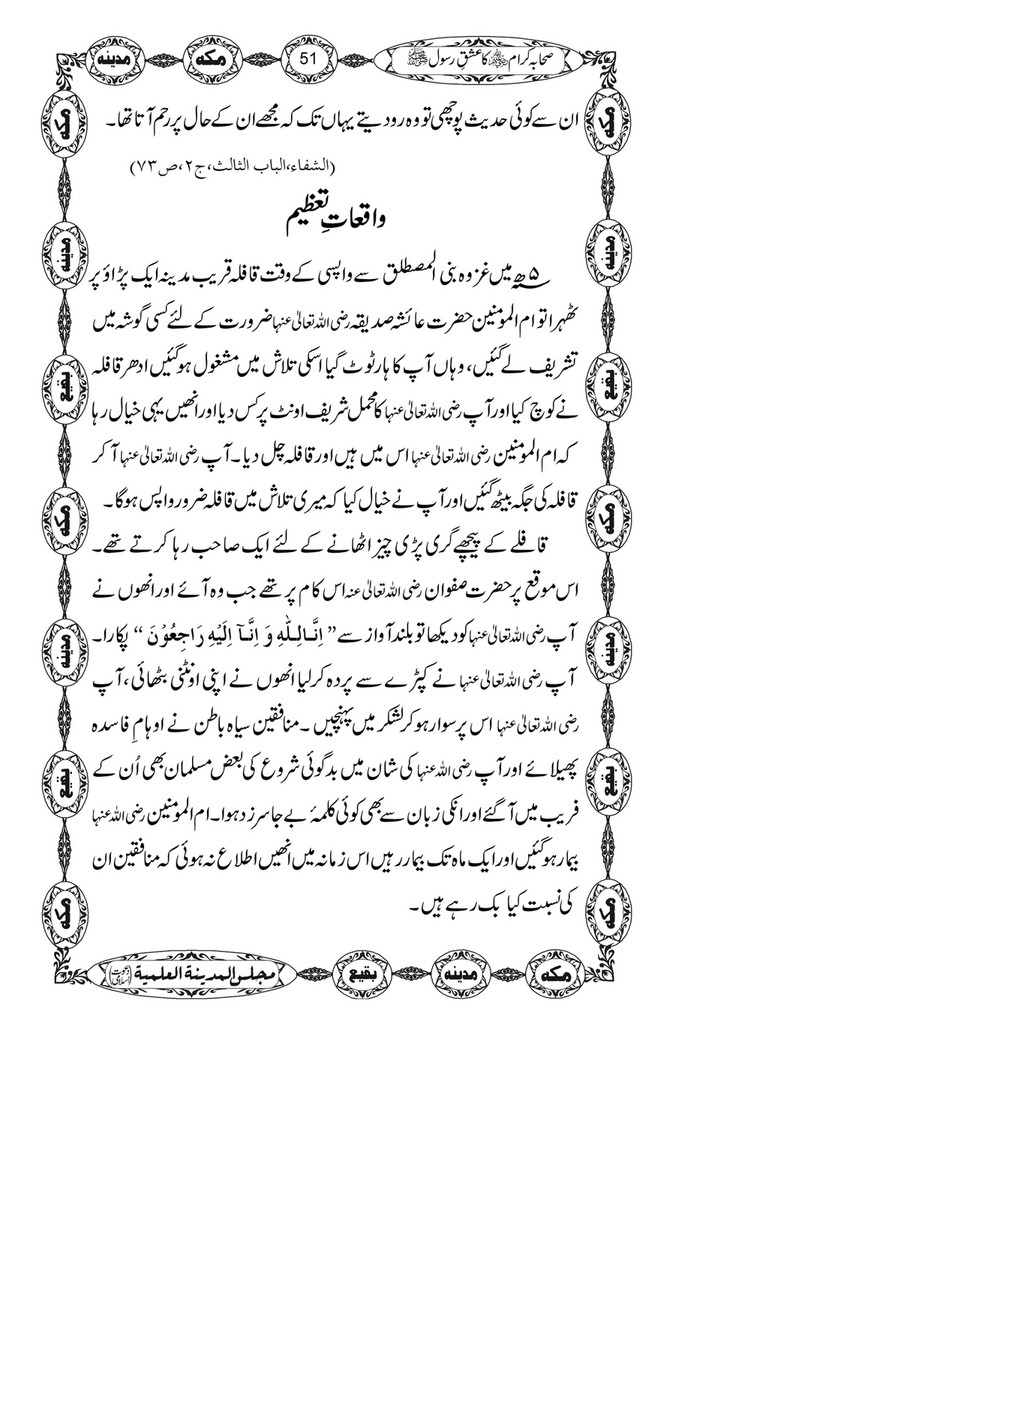 صحابہ کرام رضی اللہ عنہم کا عشق رسول ﷺ 51 مکہ مدینہ
ان سے کوئی حدیث پوچھی تو وہ رو دیتے یہاں تک کہ مجھے ان کے حال پر رحم آتا تھا۔
(الشفاء،الباب الثالث،ج۲،ص۷۳)
واقعاتِ تعظیم
۵ھ میں غزوہ بنی المصطلق سے واپسی کے وقت قافلہ قریب مدینہ ایک پڑاؤ پر
ٹھہرا تو ام المومنین حضرت عائشہ صدیقہ رضی اللہ تعالیٰ عنہا ضرورت کے لئے کسی گوشہ میں
تشریف لے گئیں، وہاں آپ کا ہار ٹوٹ گیا اسکی تلاش میں مشغول ہوگئیں ادھر قافلہ
نے کوچ کیا اور آپ رضی اللہ تعالیٰ عنہا کا محمل شریف اونٹ پر کس دیا اور انھیں یہی خیال رہا
کہ ام المومنین رضی اللہ تعالیٰ عنہا اس میں ہیں اور قافلہ چل دیا۔ آپ رضی اللہ تعالیٰ عنہا آ کر
قافلہ کی جگہ بیٹھ گئیں اور آپ نے خیال کیا کہ میری تلاش میں قافلہ ضرور واپس ہوگا۔
قافلے کے پیچھے گری پڑی چیز اٹھانے کے لئے ایک صاحب رہا کرتے تھے۔
اس موقع پر حضرت صفوان رضی اللہ تعالیٰ عنہ اس کام پر تھے جب وہ آئے اور انھوں نے
آپ رضی اللہ تعالیٰ عنہا کو دیکھا تو بلند آواز سے ” اِنَّا لِلّٰهِ وَ اِنَّآ اِلَيْهِ رَاجِعُوْنَ “ پکارا۔
آپ رضی اللہ تعالیٰ عنہا نے کپڑے سے پردہ کرلیا انھوں نے اپنی اونٹنی بٹھائی، آپ
رضی اللہ تعالیٰ عنہا اس پر سوار ہو کر لشکر میں پہنچیں۔ منافقین سیاہ باطن نے اوہامِ فاسدہ
پھیلائے اور آپ رضی اللہ عنہا کی شان میں بدگوئی شروع کی بعض مسلمان بھی اُن کے
فریب میں آگئے اور انکی زبان سے بھی کوئی کلمۂ بے جا سرزد ہوا۔ ام المومنین رضی اللہ عنہا
بیمار ہوگئیں اور ایک ماہ تک بیمار رہیں اس زمانہ میں انھیں اطلاع نہ ہوئی کہ منافقین ان
کی نسبت کیا بک رہے ہیں۔
مکہ
مدینہ
بقیع
مکہ
مدینہ
بقیع
مکہ
مکہ
مدینہ
بقیع
مکہ
مدینہ
بقیع
مکہ
مکہ مدینہ بقیع مجلس المدینۃ العلمیۃ (دعوت اسلامی)